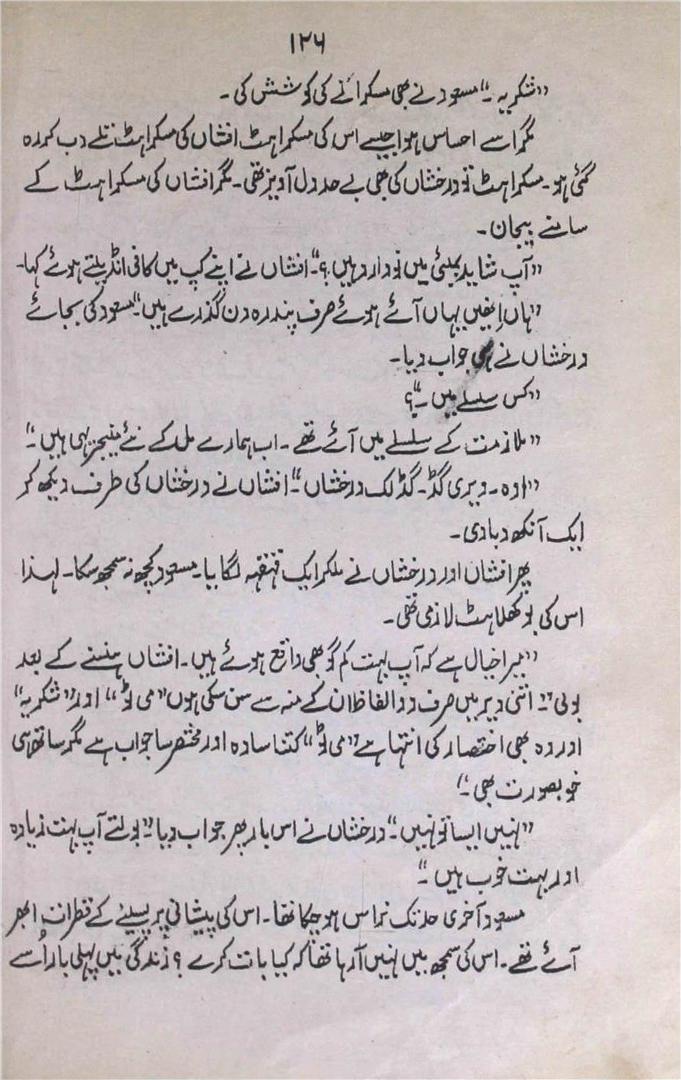 ۱۲۶
”شکریہ۔“ مسعود نے بھی مسکرانے کی کوشش کی۔
مگر اسے احساس ہوا جیسے اس کی مسکراہٹ افشاں کی مسکراہٹ تلے دب کر رہ
گئی ہو۔ مسکراہٹ تو درخشاں کی بھی بے حد دل آویز تھی۔ مگر افشاں کی مسکراہٹ کے
سامنے بیجان۔
”آپ شاید بمبئی میں نووارد ہیں؟“ افشاں نے اپنے کپ میں کافی انڈیلتے ہوئے کہا۔
”ہاں انھیں یہاں آئے ہوئے صرف پندرہ دن گذرے ہیں۔“ مسعود کی بجائے
درخشاں نے ہی جواب دیا۔
”کس سلسلے میں۔“؟
”ملازمت کے سلسلے میں آئے تھے۔ اب ہمارے مل کے نئے مینیجر یہی ہیں۔“
”اوہ۔ ویری گڈ۔ گڈ لک درخشاں۔“ افشاں نے درخشاں کی طرف دیکھ کر
ایک آنکھ دبا دی۔
پھر افشاں اور درخشاں نے ملکر ایک قہقہہ لگایا۔ مسعود کچھ نہ سمجھ سکا۔ لہذا
اس کی بوکھلاہٹ لازمی تھی۔
”میرا خیال ہے کہ آپ بہت کم گو بھی واقع ہوئے ہیں۔ افشاں ہنسنے کے بعد
بولی“۔ اتنی دیر میں صرف دو الفاظ ان کے منہ سے سن سکی ہوں ”می لوڈ“ اور ”شکریہ“
اور وہ بھی اختصار کی انتہا ہے ”می لوڈ“ کتنا سادہ اور مختصر سا جواب ہے مگر ساتھ ہی
خوبصورت بھی۔“
”نہیں ایسا تو نہیں۔“ درخشاں نے اس بار پھر جواب دیا ”بولتے آپ بہت زیادہ
اور بہت خوب ہیں۔“
مسعود آخری حد تک نراس ہو چکا تھا۔ اس کی پیشانی پر پسینے کے قطرات ابھر
آئے تھے۔ اس کی سمجھ میں نہیں آ رہا تھا کہ کیا بات کرے؟ زندگی میں پہلی بار اُسے